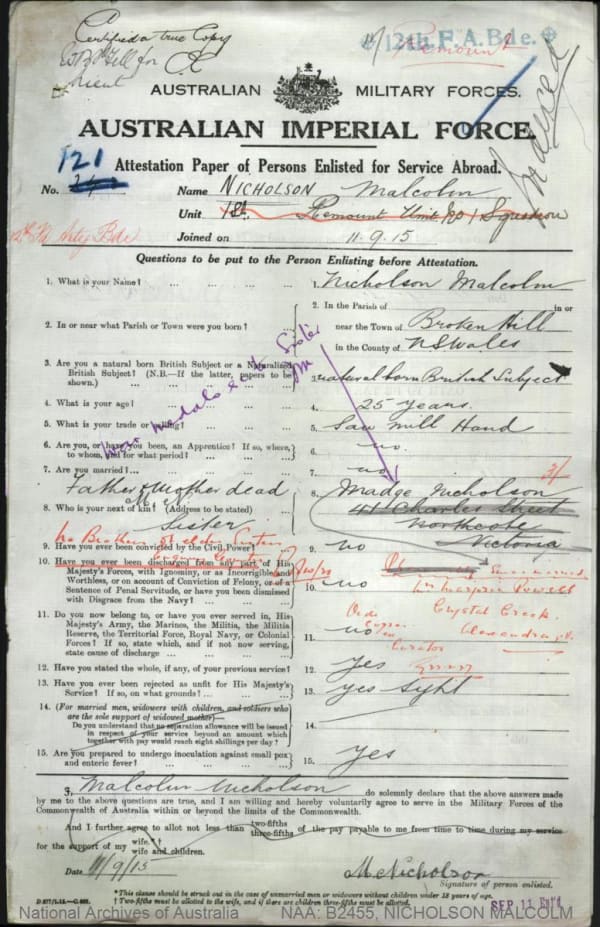 Certified a true Copy
12th F.A. Bde.
Remount
AUSTRALIAN MILITARY FORCES.
AUSTRALIAN IMPERIAL FORCE.
Attestation Paper of Persons Enlisted for Service Abroad.
121
No. Name NICHOLSON Malcolm
Unit 1st Remount Unit No 1 Squadron
12th Fd Arty Bde
Joined on 11.9.15
Questions to be put to the Person Enlisting before Attestation.
1. What is your Name? ... ... ... ... 1. Nicholson Malcolm
2. In or near what Parish or Town were you born? ... 2. In the Parish of in or
near the Town of Broken Hill
in the County of NSWales
3. Are you a natural born British Subject or a Naturalized British Subject? (N.B.—If the latter, papers to be shown.) ... 3. natural born British Subject
4. What is your age? ... ... ... ... 4. 25 years.
5. What is your trade or calling? ... ... ... 5. Saw mill Hand
6. Are you, or have you been, an Apprentice? If so, where, to whom, and for what period? ... ... 6. no
7. Are you married? ... ... ... 7. no
Father & Mother dead
8. Who is your next of kin? (Address to be stated) 8. Madge Nicholson
41 Charles Street
Northcote
Victoria
Sister
no Brothers or elder Sisters
9. Have you ever been convicted by the Civil Power? 9. no
10. Have you ever been discharged from any part of His Majesty's Forces, with Ignominy, or as Incorrigible and Worthless, or on account of Conviction of Felony, or of a Sentence of Penal Servitude, or have you been dismissed with Disgrace from the Navy? ... ... 10. no
Marjorie Powell
Crystal Creek
Alexandra
11. Do you now belong to, or have you ever served in, His Majesty's Army, the Marines, the Militia, the Militia Reserve, the Territorial Force, Royal Navy, or Colonial Forces? If so, state which, and if not now serving, state cause of discharge ... ... 11. no
12. Have you stated the whole, if any, of your previous service? 12. yes
13. Have you ever been rejected as unfit for His Majesty's Service? If so, on what grounds? ... ... 13. yes Sight
14. (For married men, widowers with children, and soldiers who are the sole support of widowed mother)—
Do you understand that no separation allowance will be issued in respect of your service beyond an amount which together with pay would reach eight shillings per day? ... 14.
15. Are you prepared to undergo inoculation against small pox and enteric fever? ... ... ... 15. yes
I, Malcolm Nicholson do solemnly declare that the above answers made
by me to the above questions are true, and I am willing and hereby voluntarily agree to serve in the Military Forces of the
Commonwealth of Australia within or beyond the limits of the Commonwealth.
And I further agree to allot not less than two-fifths three-fifths of the pay payable to me from time to time during my service
for the support of my wife.*† wife and children.
Date 11/9/15 M. Nicholson
Signature of person enlisted.
*This clause should be struck out in the case of unmarried men or widowers without children under 18 years of age.
†Two-fifths must be allotted to the wife, and if there are children three-fifths must be allotted.
SEP. 11
National Archives of Australia NAA: B2455, NICHOLSON MALCOLM